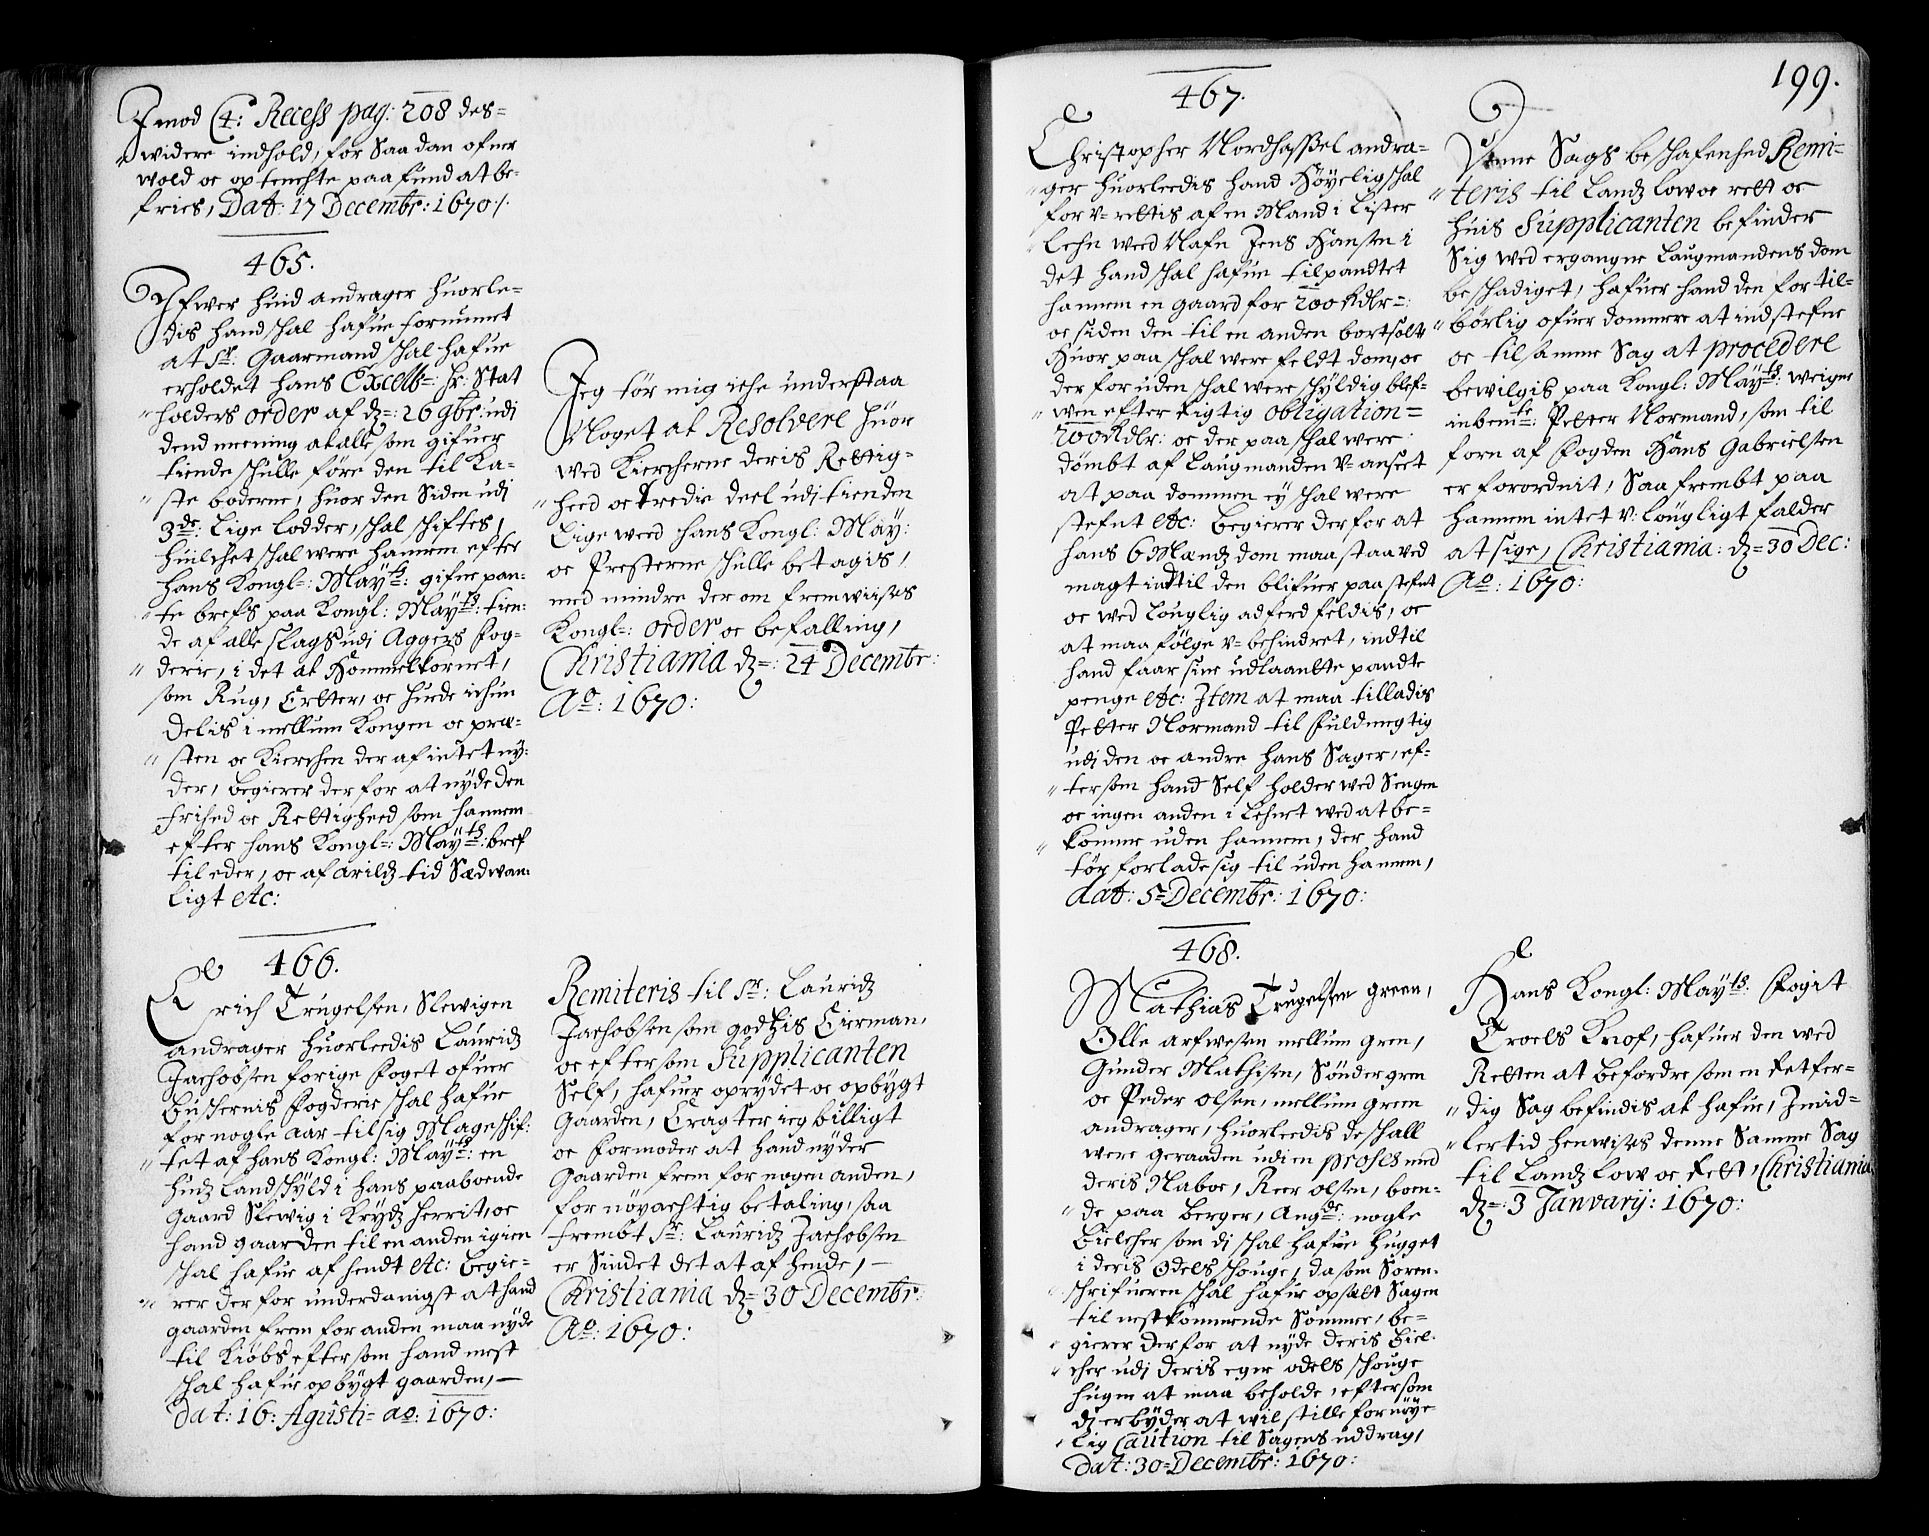 Imod C 4: Recess pag: 208 des=
widere indhold, for Saadan ofuer
wold oc optencte paafund at be-
fries, Dat: 17 Decembr: 1670 /.
465.
Ifwer Huid andrager huorle=
dis hand schal hafue fornummet
at Sr: Gaarmand schal hafue
erholdet hans Excell=: Hr: Stat
holders order af dz=: 26 9br: udi
dend meening at alle som gifuer
tiende schulle føre den til Ka-
ste boderne, huor den Siden udj
3de: Lige lodder, schal schiftes,
huilchet schal were hannem efter
hans Kongl=: Mayts: gifne pan-
te brefs paa Kongl: Mayts: tien-
de af alle slags udi Aggers Fog-
derie, i det at Hommelkornet,
som Rug, Ertter, oc hude ichun
delis i mellum Kongen oc præ-
sten oc Kierchen der af intet ny-
der, begierer der for at nyde den
frihed oc Rettigheed som hannem
efter hans Kongl=: Mayts: bref
til eder, oc af arildz tid Sædwan-
ligt etc:
Jeg tør mig iche understaa
Noget at Resolvere huor
wed Kiercherne deris Rettig-
heed oc tredie deel udj tienden
Lige weed hans Kongl: May:
oc Presterne schulle betagis,
med mindre der om fremwises
Kongl=: order oc befalling,
Christiania dz=: 24 Decembr:
Ao: 1670:
466.
Erich Trugelsen, Slewigen
andrager huorleedis Lauridz
Jachobsen forige Foget ofuer
Buskernis Fogderie schal hafue
for nogle aar til sig Mageschif-
tet af hans Kongl: Mayts: en
hudz Landschyld i hans paaboende
Gaard Slewig i Krydz herrit, oc
hand gaarden til en anden igien
schal hafue af hendt etc: begie=
rer der for underdanigst at hand
gaarden frem for anden maa nyde
til Kiøbs eftersom hand mest
schal hafue opbygt gaarden, —
dat: 16: Agusti= ao: 1670:
Remiteris til Sr: Lauridz
Jachobsen som godtzis Eierman,
oc eftersom Supplicanten
Self, hafuer oprydet oc opbygt
Gaarden, Eragter ieg billigt
oc formoder at hand nyder
Gaarden frem for nogen anden,
for nøyachtig betaling, saa
frembt Sr: Lauridz Jachobsen
er Sindet det at af hende, —
Christiania dz= 30 Decembr:
Ao: 1670:
199.
467.
Christopher Nordhassel andra=
ger huorleedis hand Høyelig schal
for u=rettis af en Mand i Lister
Lehn weed Nafn Jens Hansen i
det hand schal hafue tilpandtet
hannem en gaard for 200 Rdlr=:
oc siden den til en anden bortsolt
Huor paa schal were feldt dom, oc
der foruden schal were schyldig blef-
wen efter rigtig obligation=
200 Rdlr: oc der paa schal were
dømbt af Laugmanden u=anseet
at paa dommen ey schal were
stefnt etc: begierer der for at
hans 6 Mændz dom maa staa ved
magt indtil den blifuer paa stefnt
oc wed Louglig adferd feldis, oc
at maa følge u=behindret, indtil
hand faar sine udlaante pandte
penge etc: Item at maa tilladis
Petter Normand til fuldmegtig
udi den oc andre hans Sager, ef-
tersom hand Self holder wed Sengen
oc ingen anden i Lehnet wed at be=
komme uden hannem, der hand
tør forlade sig til uden hannem,
dat: 5= Decembr: 1670:
Denne Sags beschafenhed Remi-
teris til Landz Low oc rett oc
huis Supplicanten befinder
Sig wed ergangne Laugmandens dom
beschadiget, hafuer hand den for til-
børlig ofuer dommere at indstefne
oc til samme Sag at procedere
bewilgis paa Kongl: Mayts: weigne
inbemte: Petter Normand, som til
forn af Fogden Hans Gabrielsen
er forordnit, Saa frembt paa
hannem intet u-lougligt falder
at sige, Christiania: dz= 30 Dec:
Ao: 1670:
468.
Mathias Trugelsen green,
Olle arfwesen mellum gren,
Gunder Mathisen, Sønder gren
oc Peder olsen, mellum green
andrager, huorleedis de schall
were geraaden udi en proses med
deris Naboe, Reer olsen, boen-
de paa berger, Angde: nogle
Bielcher som di schal hafue hugget
i deris Odels schouge, da som Soren-
schrifueren schal hafue opsatt Sagen
til nestkommende Sommer, be=
gierer derfor at nyde deris Biel-
cher udj deris eger odels schouge
hugen at maa beholde, eftersom
dj erbyder at wil stille fornøye
lig Caution til Sagens uddrag,
dat: 30= Decembr: 1670:
Hans Kongl: Mayts: Fogit
Troels Knof, hafuer den wed
Retten at befordre som en retfer-
dig Sag befindis at hafue, Imid-
lertid henwises denne Samme Sag
til Landz Low oc rett, Christiania
dz=: 3 January: 1670: